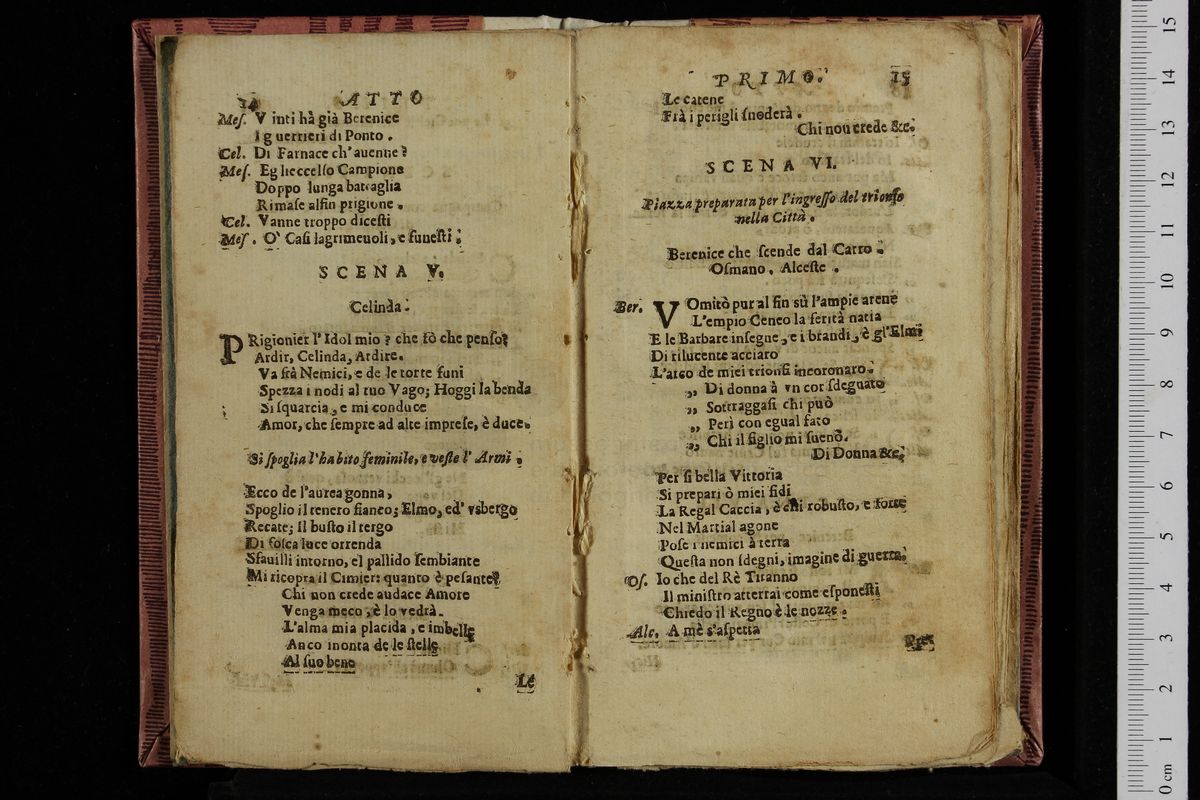 14 ATTO
Mes. Vinti hà già Berenice
I guerrieri di Ponto.
Cel. Di Farnace ch'auenne?
Mes. Eg lieccelſo Campione
Doppo lunga battaglia
Rimaſe alfin prigione.
Cel. Vanne troppo diceſti
Meſ. O' Caſi lagrimeuoli, e funeſti.
SCENA V.
Celinda.
PRigionier l'Idol mio? che fò che penſo?
Ardir, Celinda, Ardire.
Va frà Nemici, e de le torte funi
Spezza i nodi al tuo Vago; Hoggi la benda
Si ſquarcia, e mi conduce
Amor, che ſempre ad alte impreſe, è duce.
Si ſpoglia l'habito feminile, e veſte l' Armi.
Ecco de l'aurea gonna,
Spoglio il tenero fianco; Elmo, ed' vsbergo
Recate; il buſto il tergo
Di foſca luce orrenda
Sfauilli intorno, e'l pallido ſembiante
Mi ricopra il Cimier: quanto è peſante?
Chi non crede audace Amore
Venga meco, è lo vedrà.
L'alma mia placida, e imbelle
Anco inonta de le ſtelle
Al ſuo bene
Le
PRIMO. 15
Le catene
Frà i perigli ſnoderà.
Chi non crede &c.
SCENA VI.
Piazza preparata per l'ingreſſo del trionfo
nella Città.
Berenice che ſcende dal Carro.
Oſmano, Alceſte.
Ber. VOmitò pur al fin sù l'ampie arene
L'empio Ceneo la ferità natia
E le Barbare inſegne, e i brandi, è gl'Elmi
Di rilucente acciaro
L'arco de miei trionfi incoronaro.
„ Di donna à vn cor ſdegnato
„ Sottraggaſi chi può
„ Perì con egual fato
„ Chi il figlio mi ſuenò.
Di Donna &c.
Per ſi bella Vittoria
Si prepari ò miei fidi
La Regal Caccia, è chi robuſto, e forte
Nel Martial agone
Poſe i nemici à terra
Queſta non ſdegni, imagine di guerra.
Oſ. Io che del Rè Tiranno
Il miniſtro atterrai come eſponeſti
Chiedo il Regno è le nozze.
Alc. A mè s'aſpetta